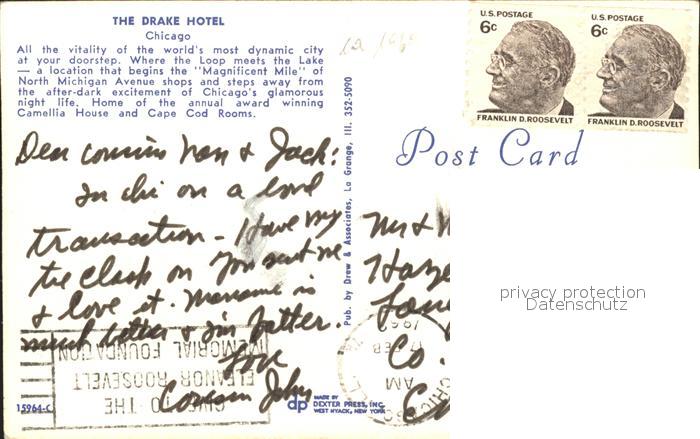 THE DRAKE HOTEL
Chicago
All the vitality of the world's most dynamic city
at your doorstep. Where the Loop meets the Lake
— a location that begins the "Magnificent Mile" of
North Michigan Avenue shops and steps away from
the after-dark excitement of Chicago's glamorous
night life. Home of the annual award winning
Camellia House and Cape Cod Rooms.
Dear cousins Nan & Jack:
In chi on a
transaction - Have my
tie clasp on you sent me
& love it. is
much better & I'm fatter.
Love
Cousin John
GIVE TO THE
ELEANOR ROOSEVELT
MEMORIAL FOUNDATION
15964-C
Pub. by Drew & Associates, La Grange, Ill. 352-5090
dp
MADE BY
DEXTER PRESS, INC.
WEST NYACK, NEW YORK
U.S. POSTAGE
6c
FRANKLIN D. ROOSEVELT
U.S. POSTAGE
6c
FRANKLIN D. ROOSEVELT
Post Card
Mr &
Co.
AM
FEB
CHICAGO
privacy protection
Datenschutz